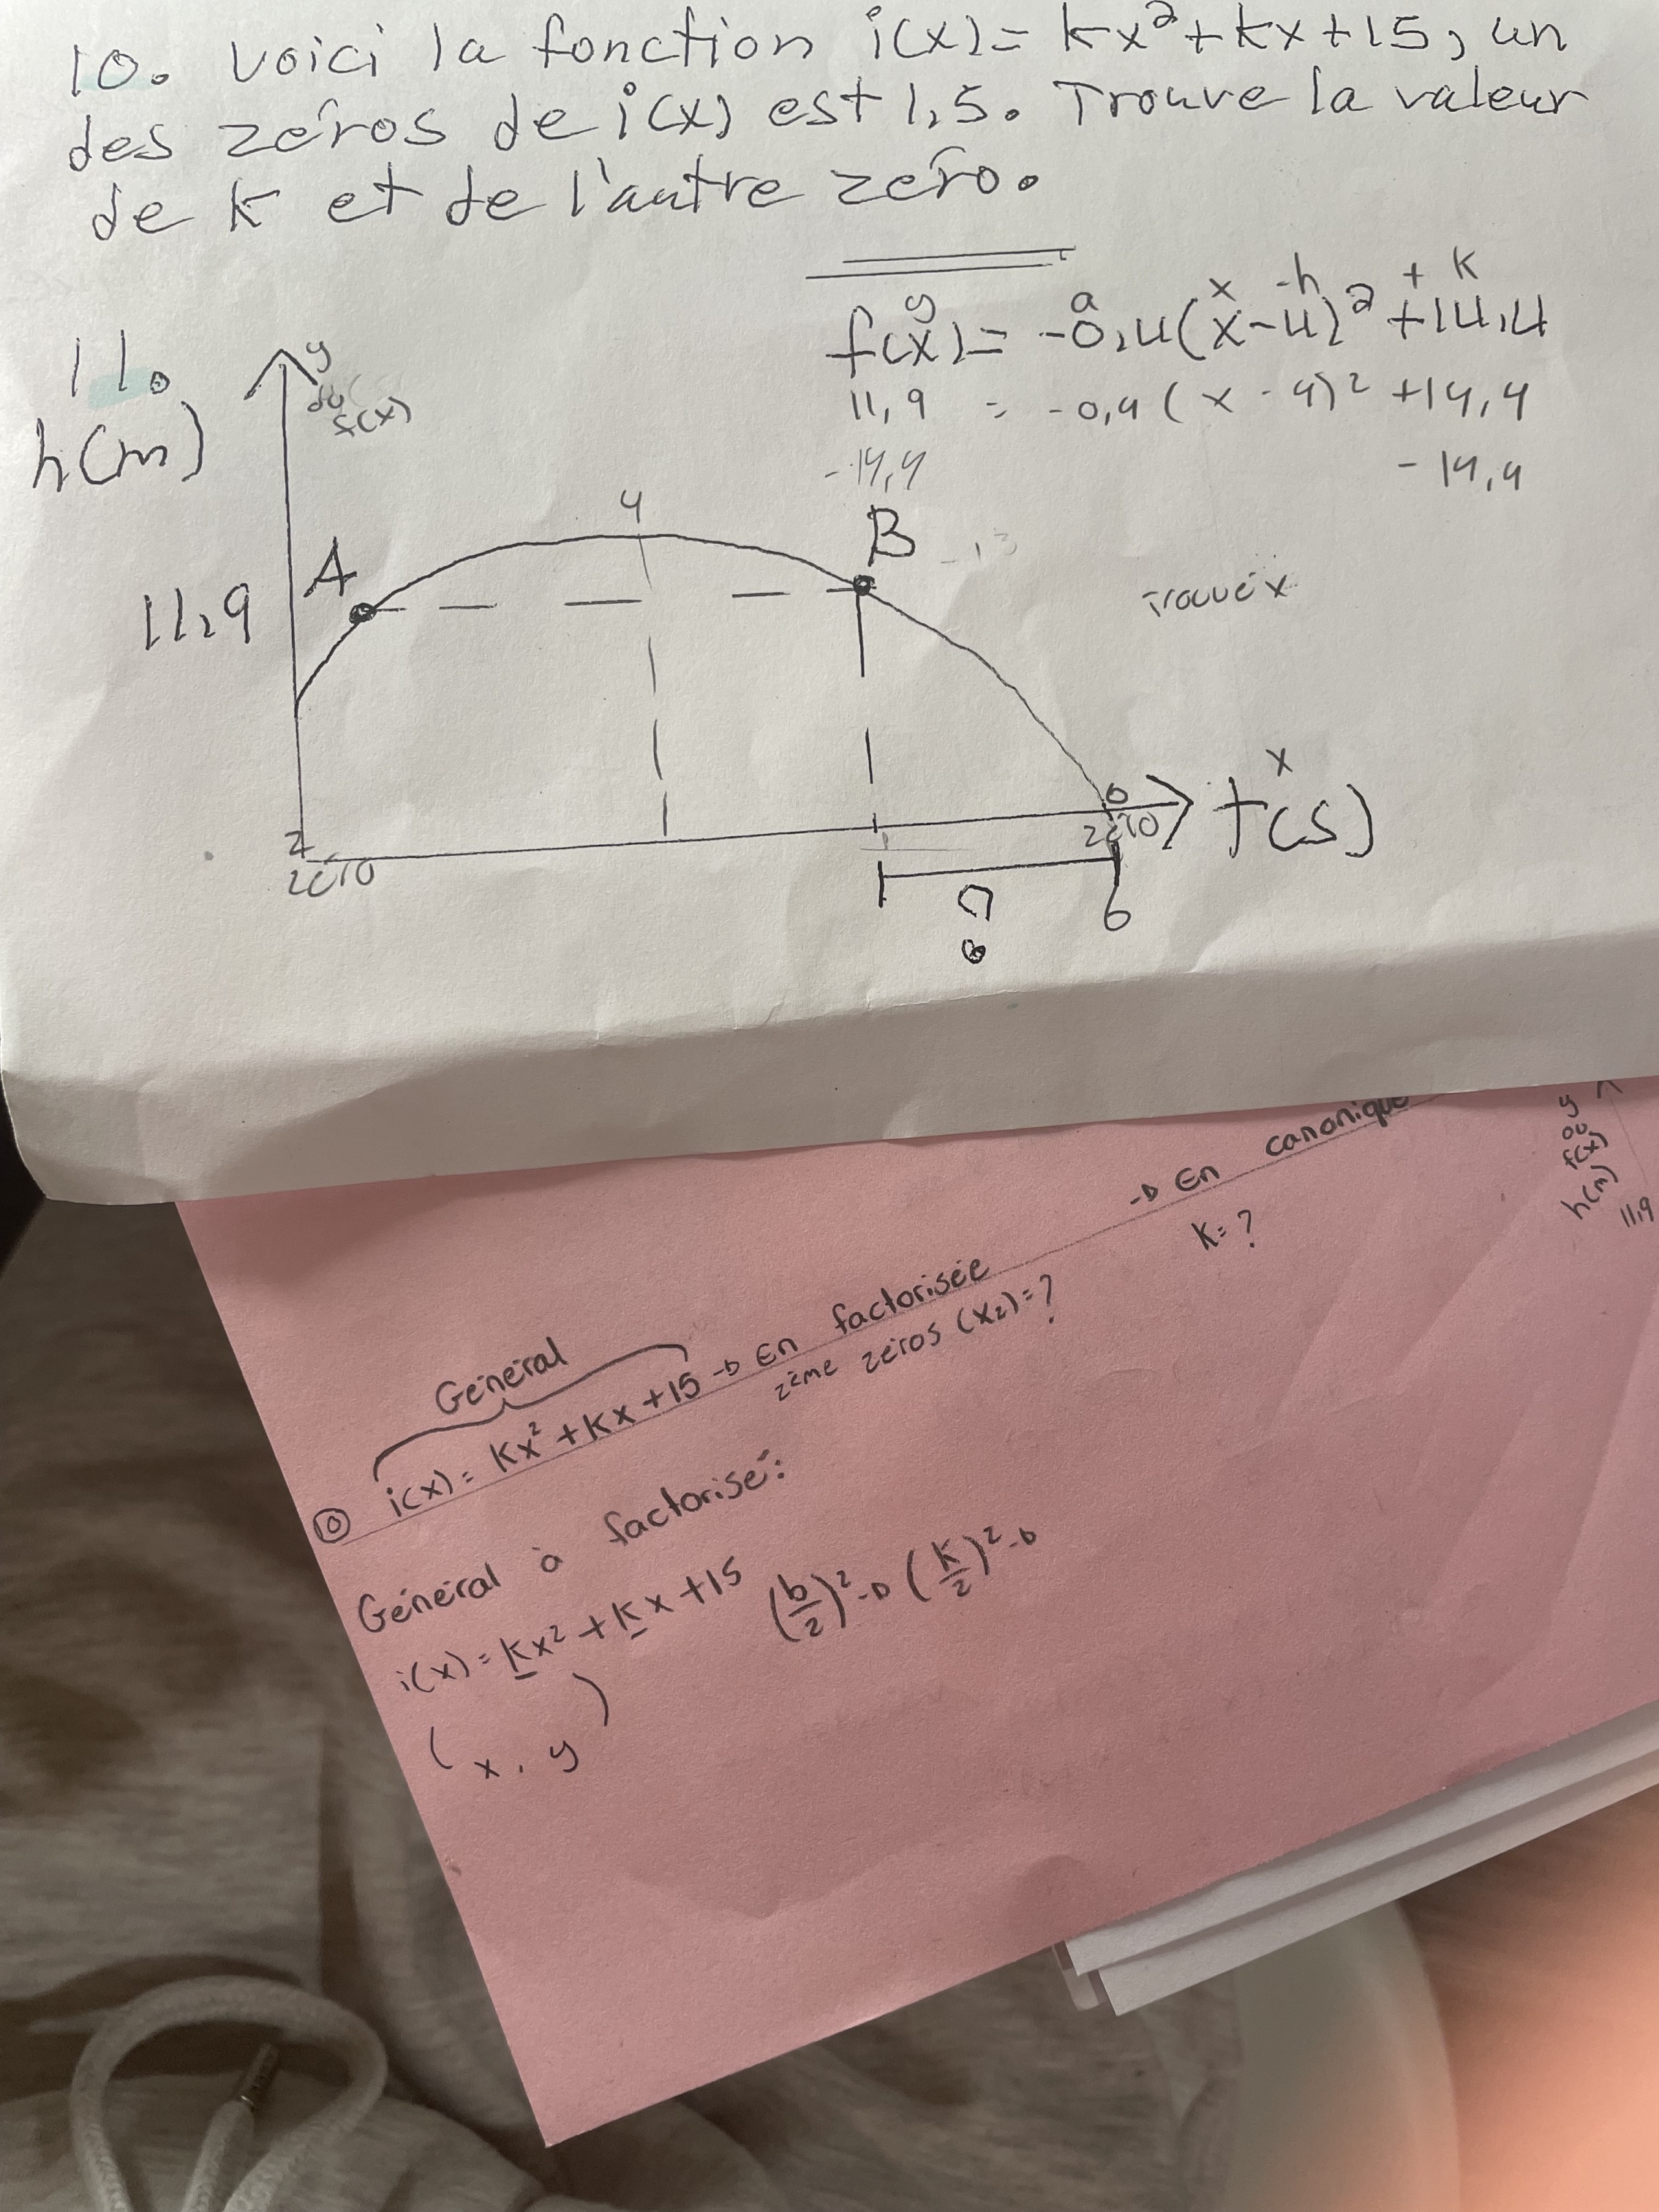 10. Voici la fonction i(x)= kx²+kx+15, un
des zéros de i(x) est 1,5. Trouve la valeur
de k et de l'autre zéro.
y a x -h + k
f(x)= -0,4(x-4)²+14,4
11,9 = -0,4(x-4)²+14,4
-14,4 -14,4
11.
y
ou
f(x)
h(m)
4
A
B
-13
11,9
Trouve x
x
t(s)
2
zéro
0
zéro
?
6
-D En canonique
K=?
y
ou
f(x)
h(m)
11,9
Général
⑩ i(x)= Kx²+Kx+15 -D En factorisée
2ème zéros (x₂)=?
Général à factorisé:
i(x)= Kx²+Kx+15 (b/2)² -D (K/2)² -D
(x, y)